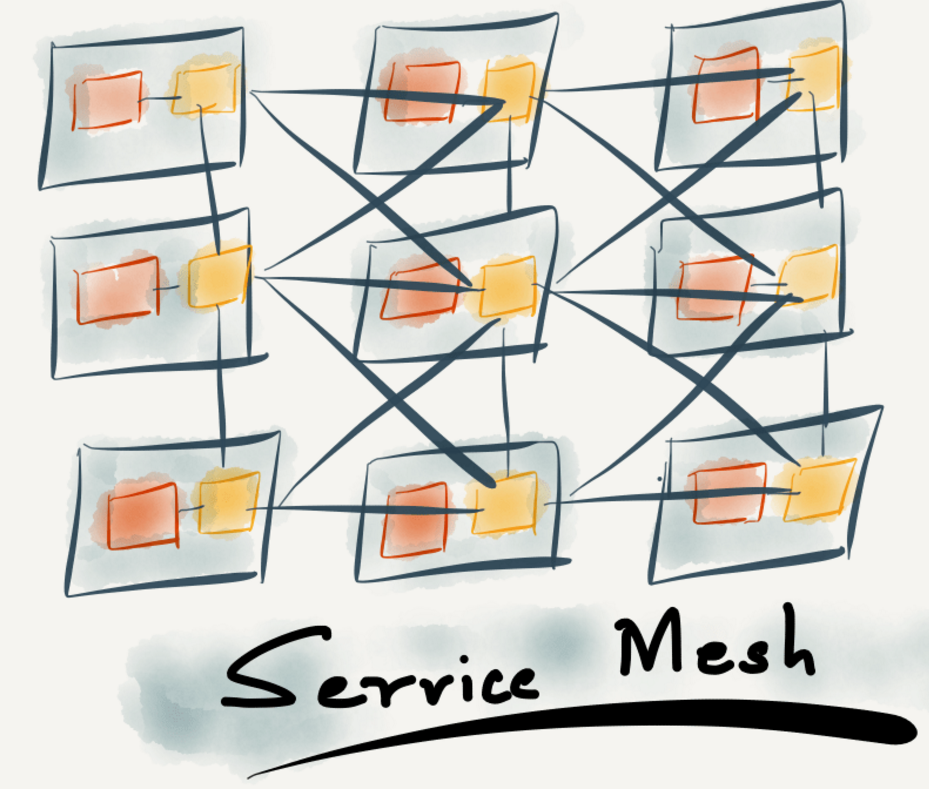 Service Mesh